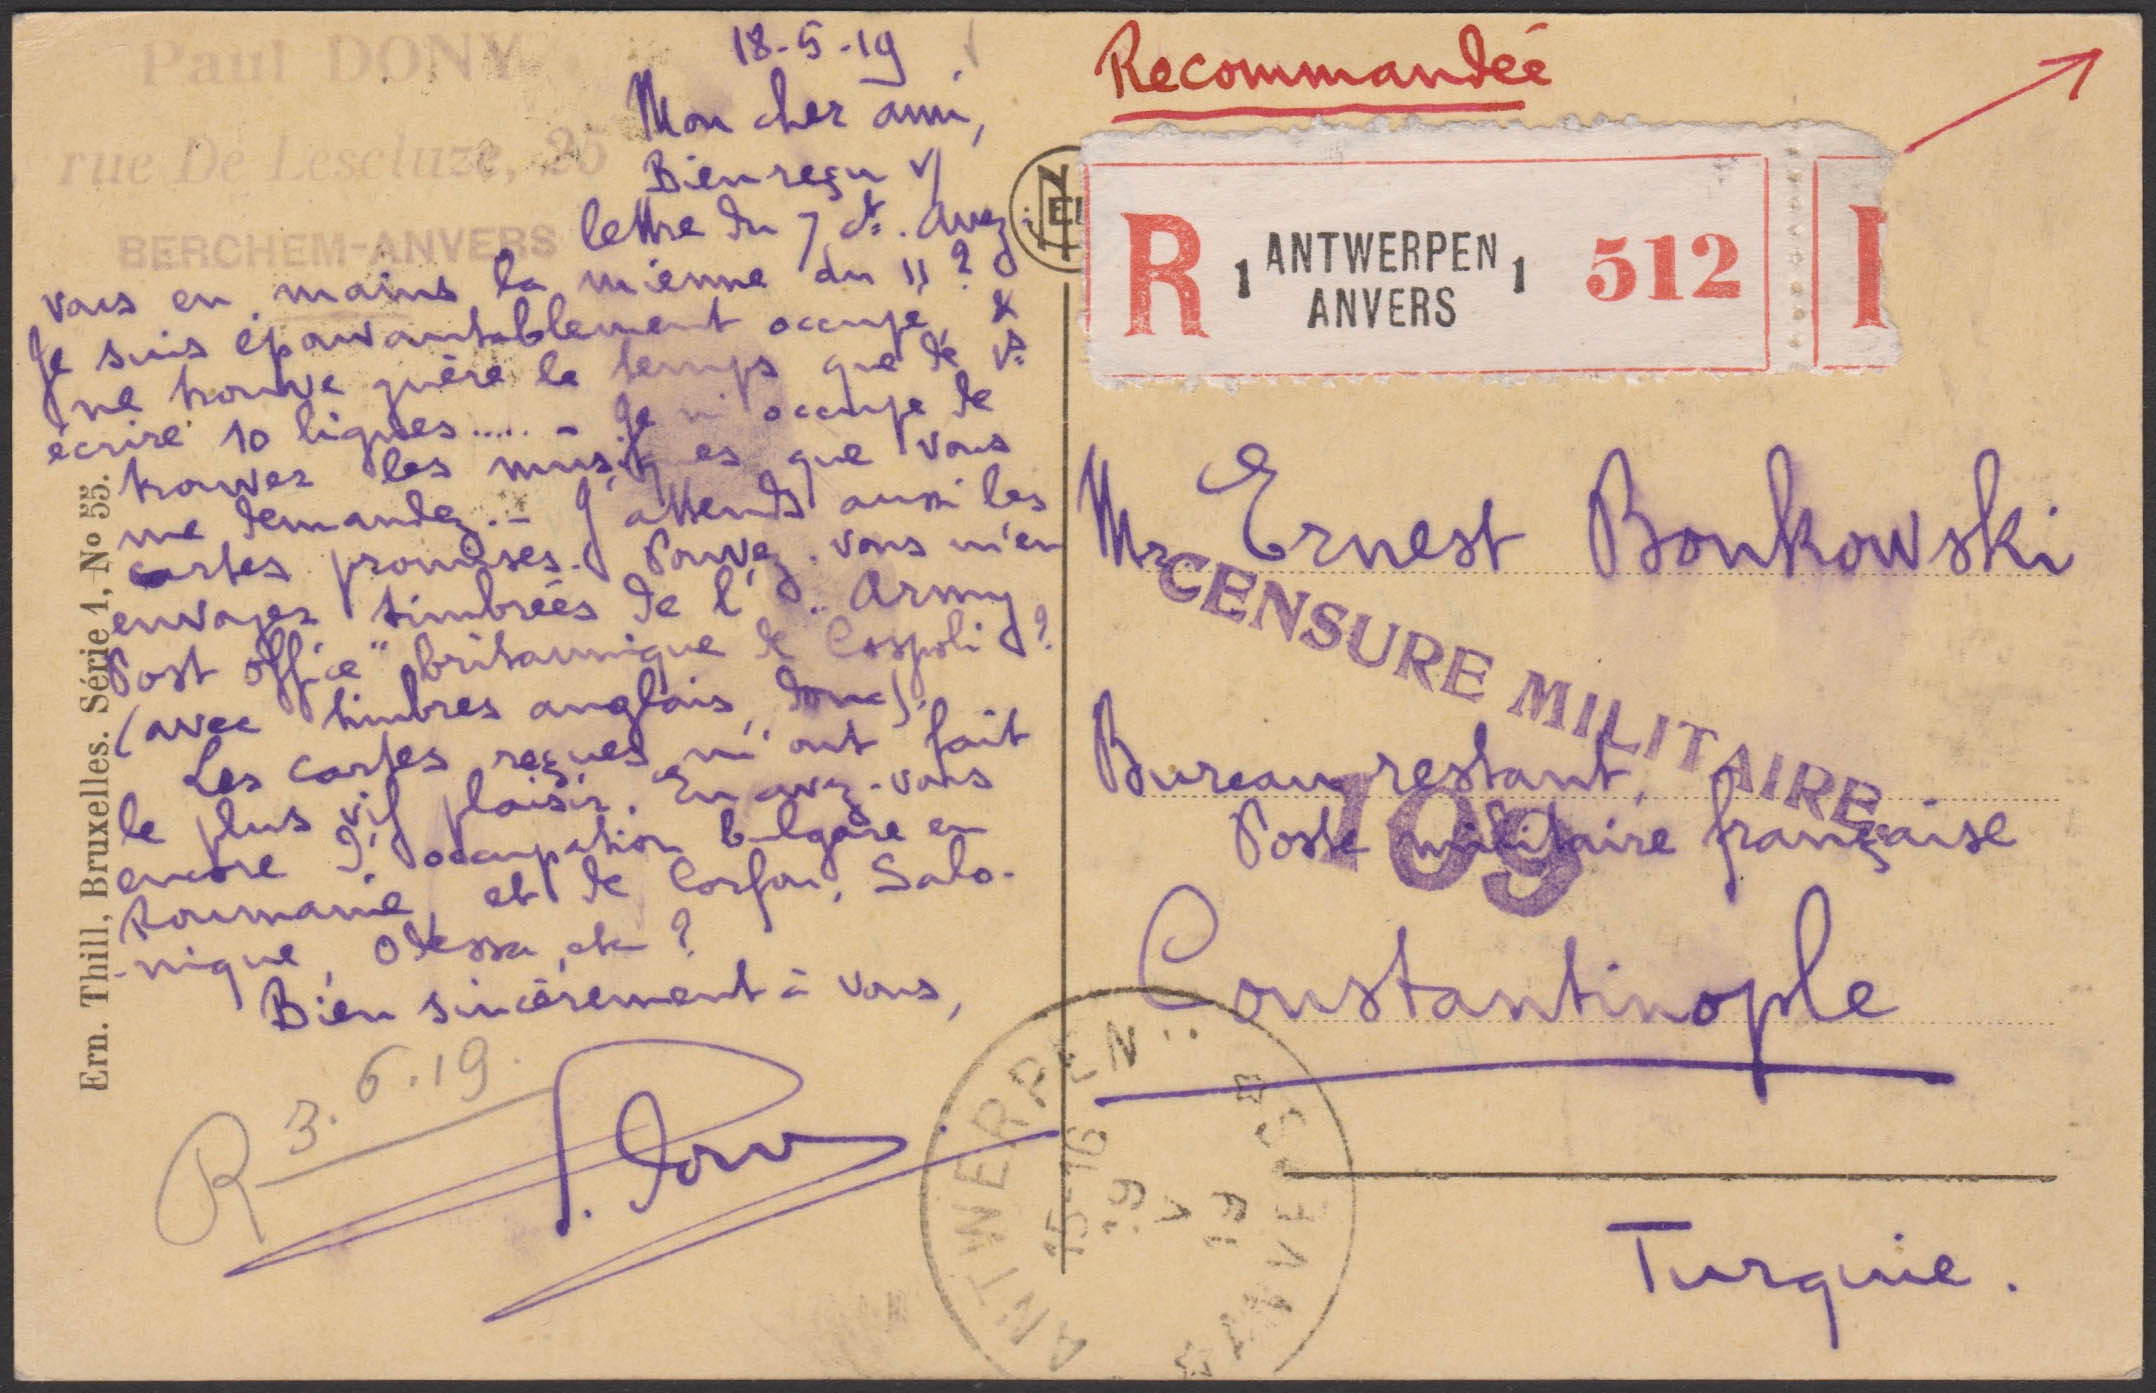 Paul DONY
rue De Lescluze, 25
BERCHEM-ANVERS
18-5-19
Mon cher ami,
Bien reçu v/
lettre du 7 ct. Avez
vous en mains la mienne du 11 ?
Je suis épouvantablement occupé, &
ne trouve guère le temps que de vs
écrire 10 lignes..... - Je m'occupe de
trouver les musiques que vous
me demandez. - J'attends aussi les
cartes promises. Pouvez-vous m'en
envoyer timbrées de l' "Army
Post Office" britannique de Cospoli ?
(avec timbres anglais, donc).
Les cartes reçues m'ont fait
le plus vif plaisir. En avez-vous
encore d'occupation bulgare en
Roumanie, et de Corfou, Salo-
-nique, Odessa, etc ?
Bien sincèrement à vous,
P. Dony
R 3.6.19.
Ern. Thill, Bruxelles. Série 1, No 55.
Recommandée
R 1 ANTWERPEN 1 512
ANVERS
Mr Ernest Bonkowski
CENSURE MILITAIRE
109
Bureau restant,
Poste militaire française
Constantinople
Turquie.
ANTWERPEN
15-16
19
V
19
ANVERS